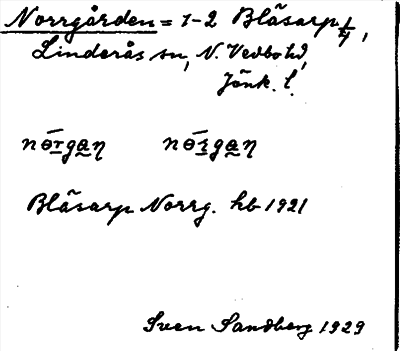 Norrgården = 1-2 Blåsarp 1/4,
Linderås sn, N. Vedbo hd,
Jönk. l.
Blåsarp Norrg. hb 1921
Sven Sandberg 1929